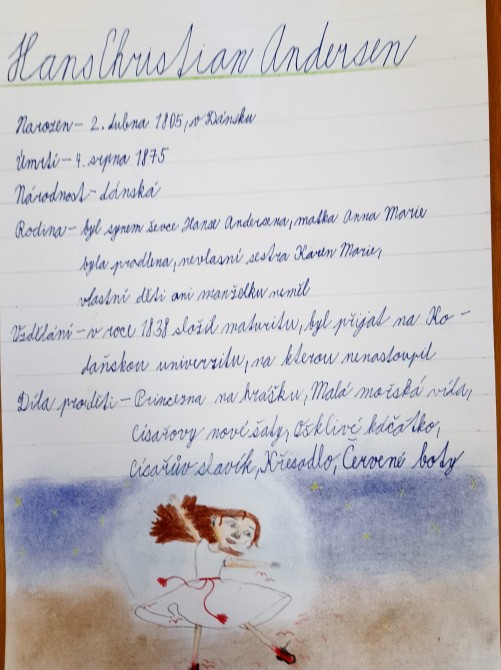 Hans Christian Andersen
Narozen - 2. dubna 1805, v Dánsku
Úmrtí - 4. srpna 1875
Národnost - dánská
Rodina - byl synem ševce Hanse Andersena, matka Anna Marie
byla pradlena, nevlasní sestra Karen Marie,
vlastní děti ani manželku neměl
Vzdělání - v roce 1838 složil maturitu, byl přijat na Ko-
daňskou univerzitu, na kterou nenastoupil
Díla pro děti - Princezna na hrášku, Malá mořská víla,
Císařovy nové šaty, Ošklivé káčátko,
Císařův slavík, Křesadlo, Červené boty